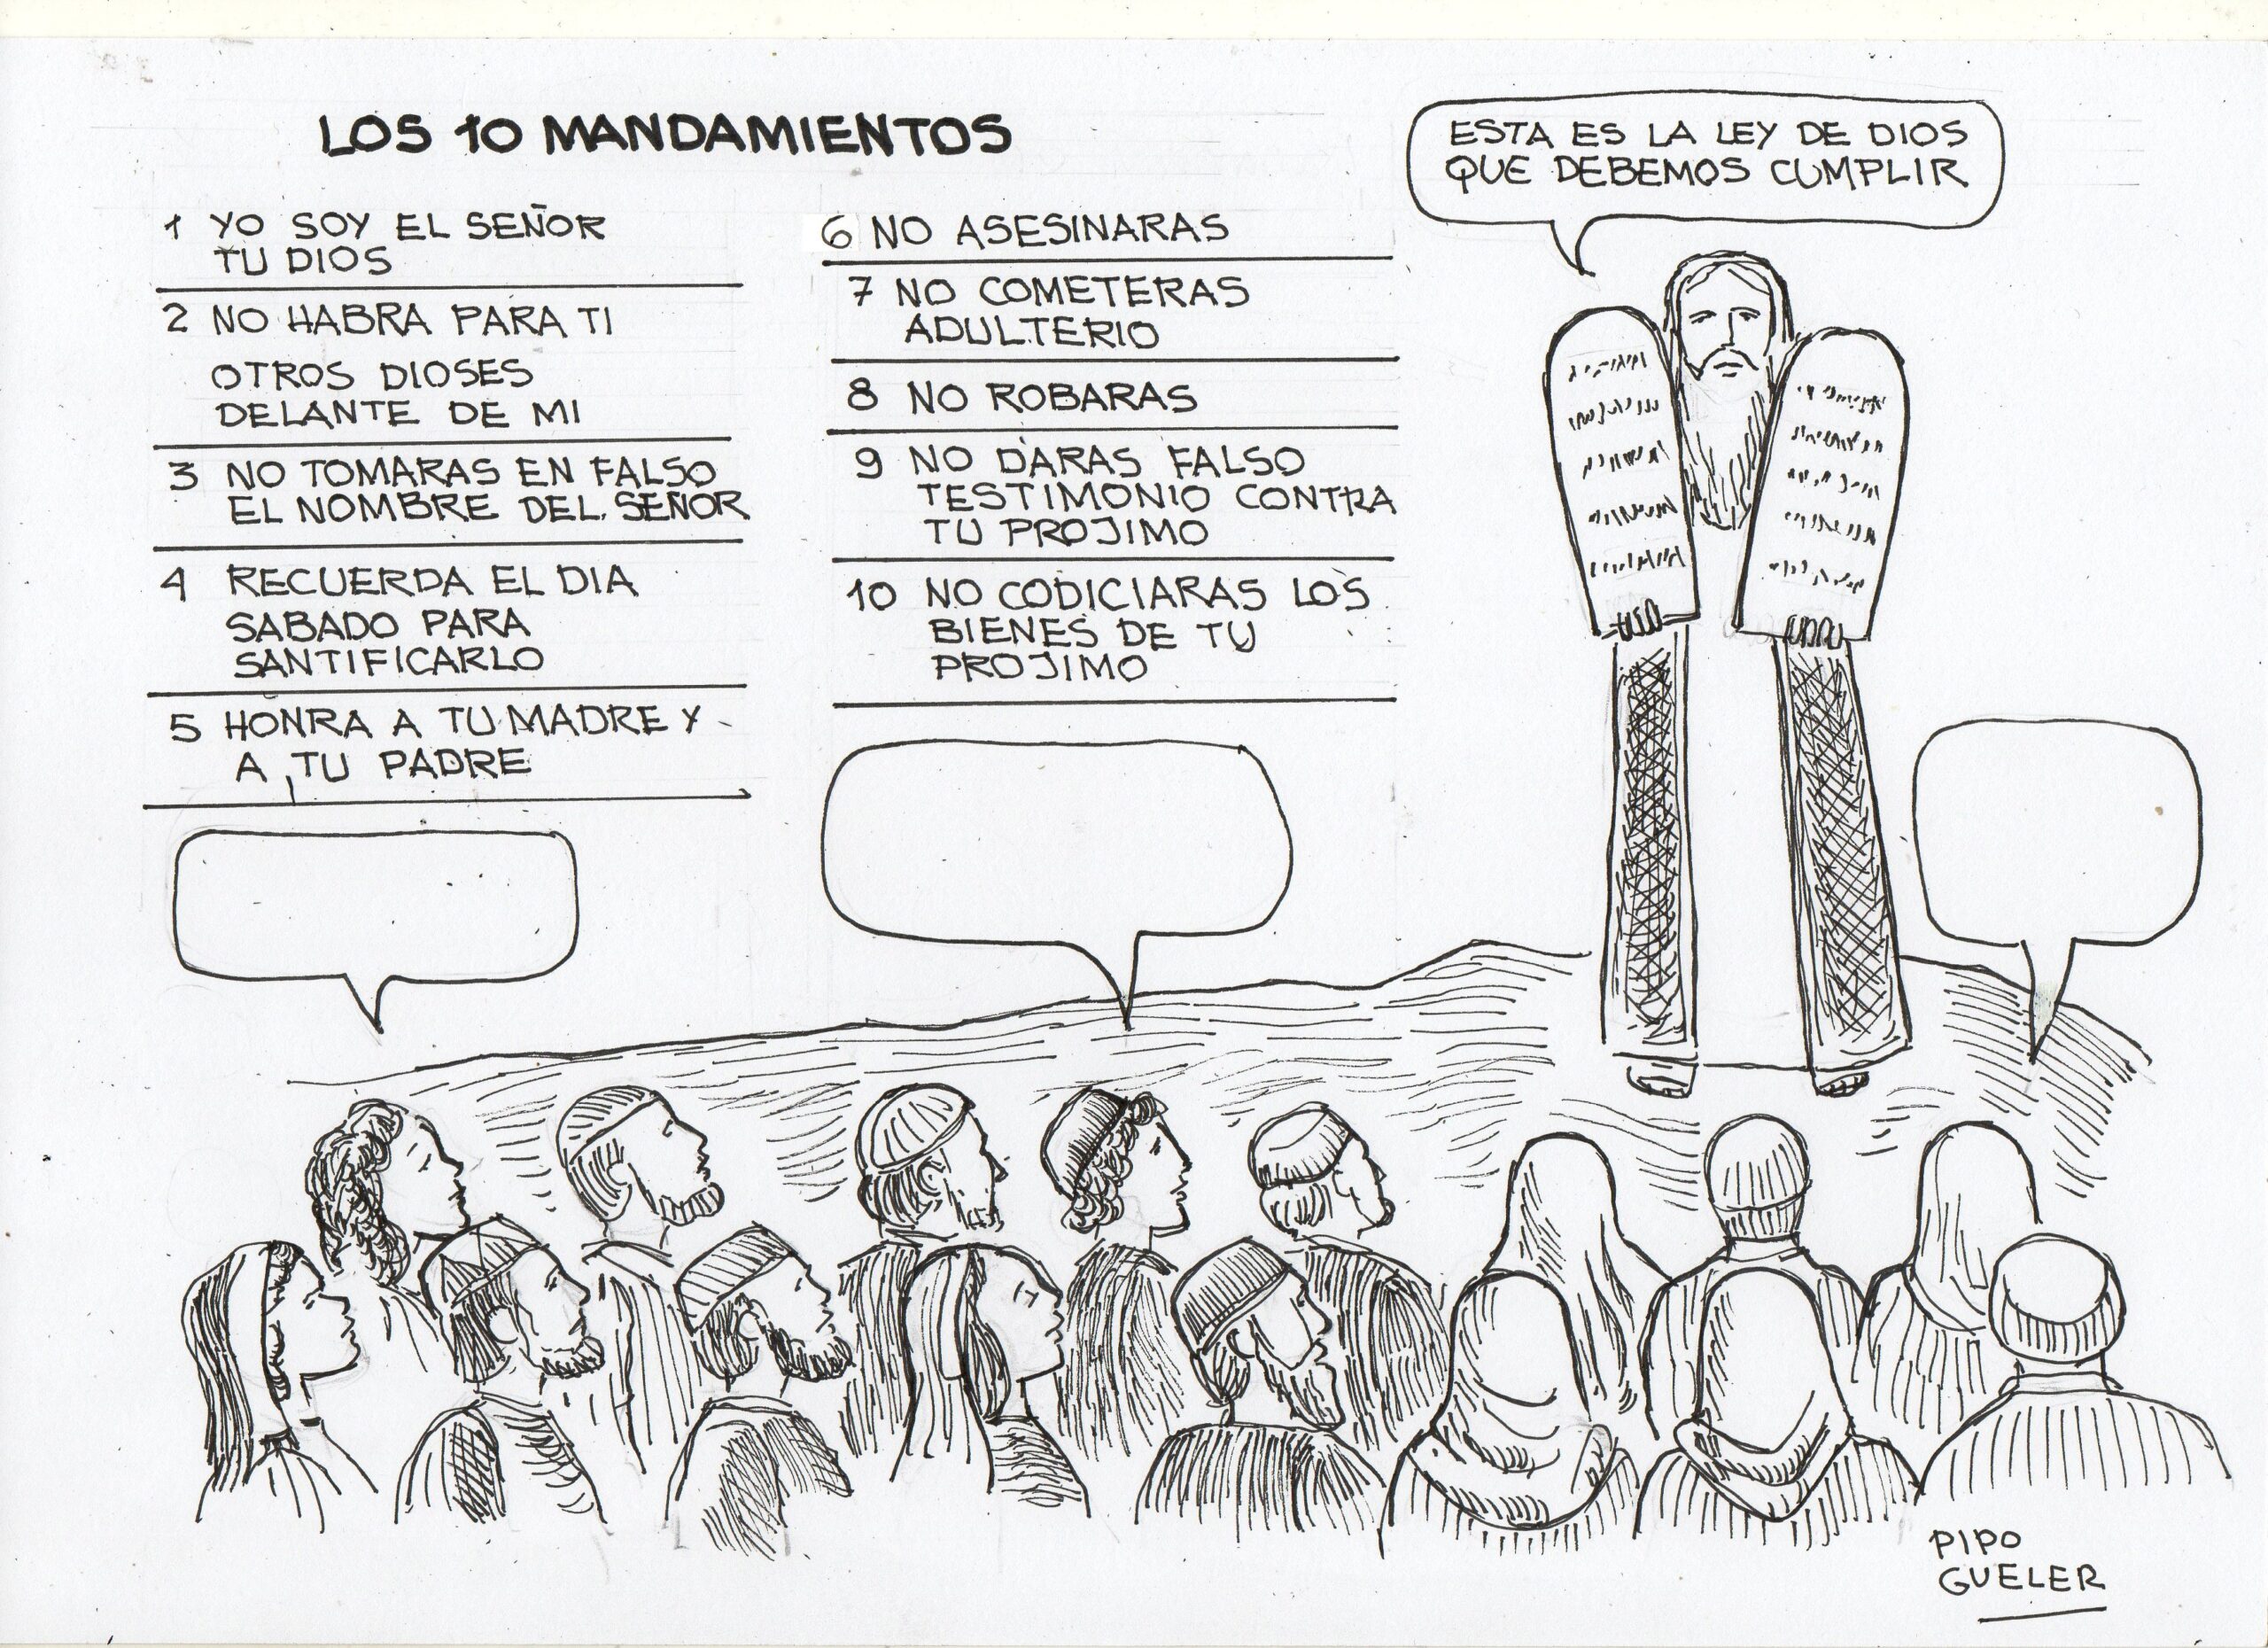 LOS 10 MANDAMIENTOS
1 YO SOY EL SEÑOR
TU DIOS
2 NO HABRA PARA TI
OTROS DIOSES
DELANTE DE MI
3 NO TOMARAS EN FALSO
EL NOMBRE DEL SEÑOR
4 RECUERDA EL DIA
SABADO PARA
SANTIFICARLO
5 HONRA A TU MADRE Y
A TU PADRE
6 NO ASESINARAS
7 NO COMETERAS
ADULTERIO
8 NO ROBARAS
9 NO DARAS FALSO
TESTIMONIO CONTRA
TU PROJIMO
10 NO CODICIARAS LOS
BIENES DE TU
PROJIMO
ESTA ES LA LEY DE DIOS
QUE DEBEMOS CUMPLIR
PIPO
GUELER